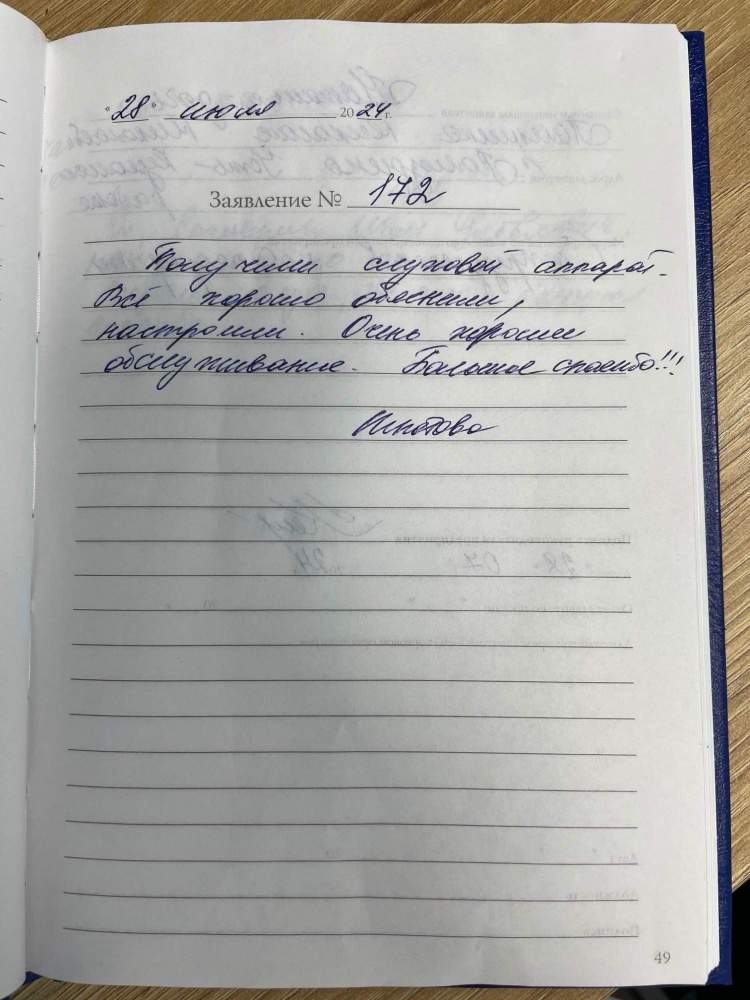 "28" июля 2024 г.
Заявление № 172
Получили слуховой аппарат.
Всё хорошо обяснили,
настроили. Очень хорошее
обслуживание. Большое спасибо!!!
49